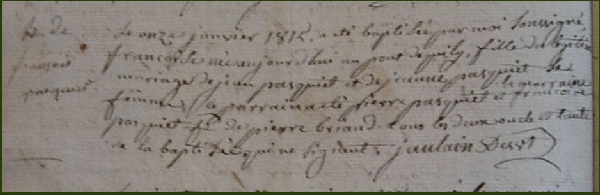 B. de
françoise
pasquiet
le onze janvier 1812, a été baptisée par moi soussigné
françoise née aujourd'hui au pont de fille du légitime
mariage de jean pasquiet et de jeanne pasquiet
femme, le parrain a été pierre pasquiet et la marraine françoise
pasquiet f. de pierre briand. tous les deux oncle et tante
de la baptisée qui ne signent.